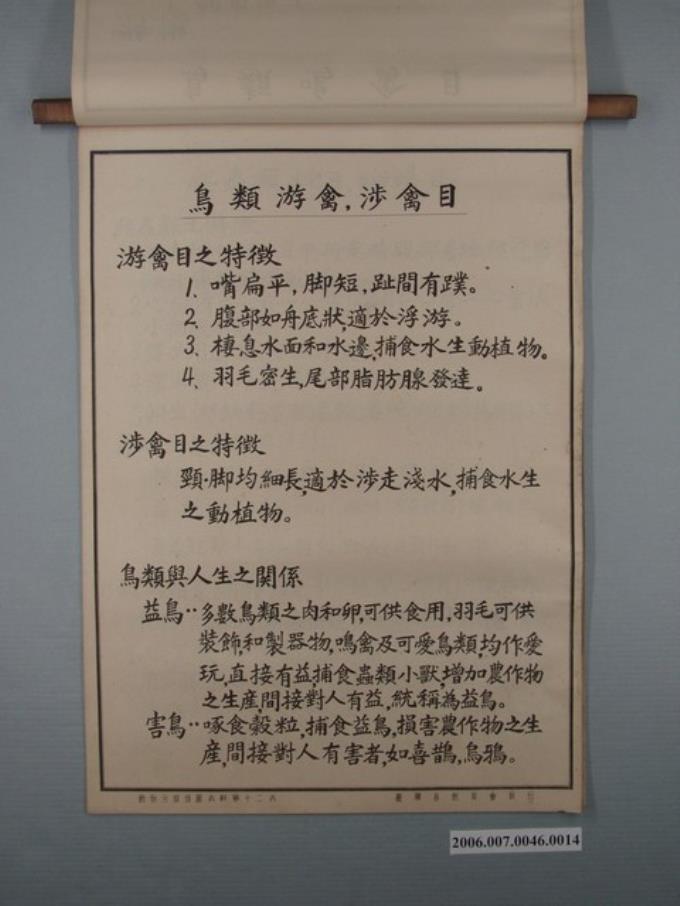 鳥類游禽,涉禽目
游禽目之特徵
1、嘴扁平,脚短,趾間有蹼。
2、腹部如舟底狀,適於浮游。
3、棲息水面和水邊,捕食水生動植物。
4、羽毛密生,尾部脂肪腺發達。
涉禽目之特徵
頸·脚均細長,適於涉走淺水,捕食水生
之動植物。
鳥類與人生之關係
益鳥‥多數鳥類之肉和卵,可供食用,羽毛可供
裝飾,和製器物,鳴禽及可愛鳥類,均作愛
玩,直接有益,捕食蟲類小獸,增加農作物
之生產,間接對人有益,統稱為益鳥。
害鳥‥啄食穀粒,捕食益鳥,損害農作物之生
產,間接對人有害者,如喜鵲,烏鴉。
2006.007.0046.0014